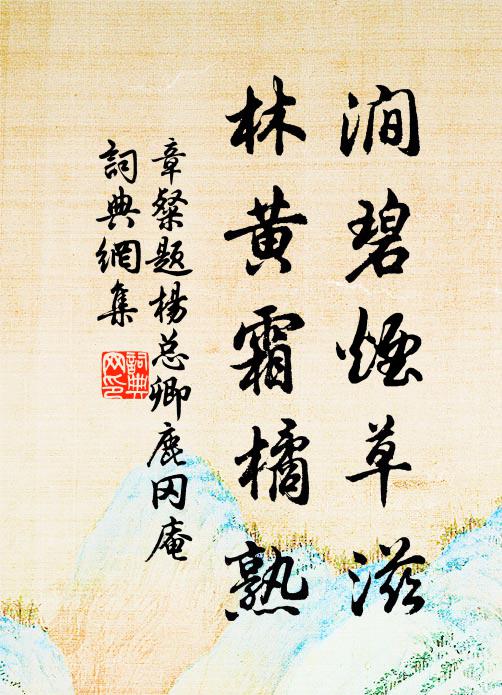 澗碧煙草滋
林黄霜橘熟
章粲題楊总卿鹿冈庵
詞典網集
詞典网印